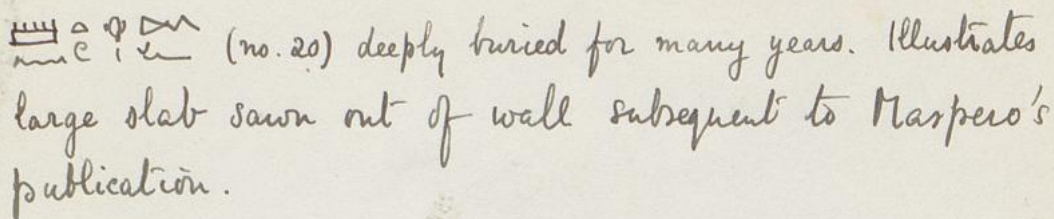 𓏠𓈖𓏏𓏲𓁷𓏤𓄗𓆑 (no. 20) deeply buried for many years. Illustrates
large slab sawn out of wall subsequent to Maspero's
publication.